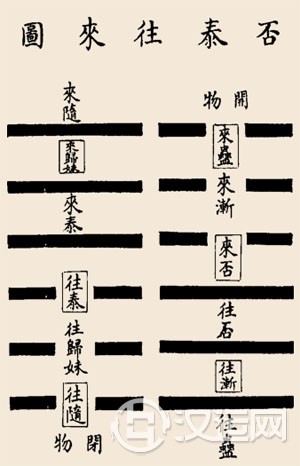 否泰往來圖
開物
來蠱
來漸
來否
往否
往漸
往蠱
來隨
來歸妹
來泰
往泰
往歸妹
往隨
閉物
汉程网